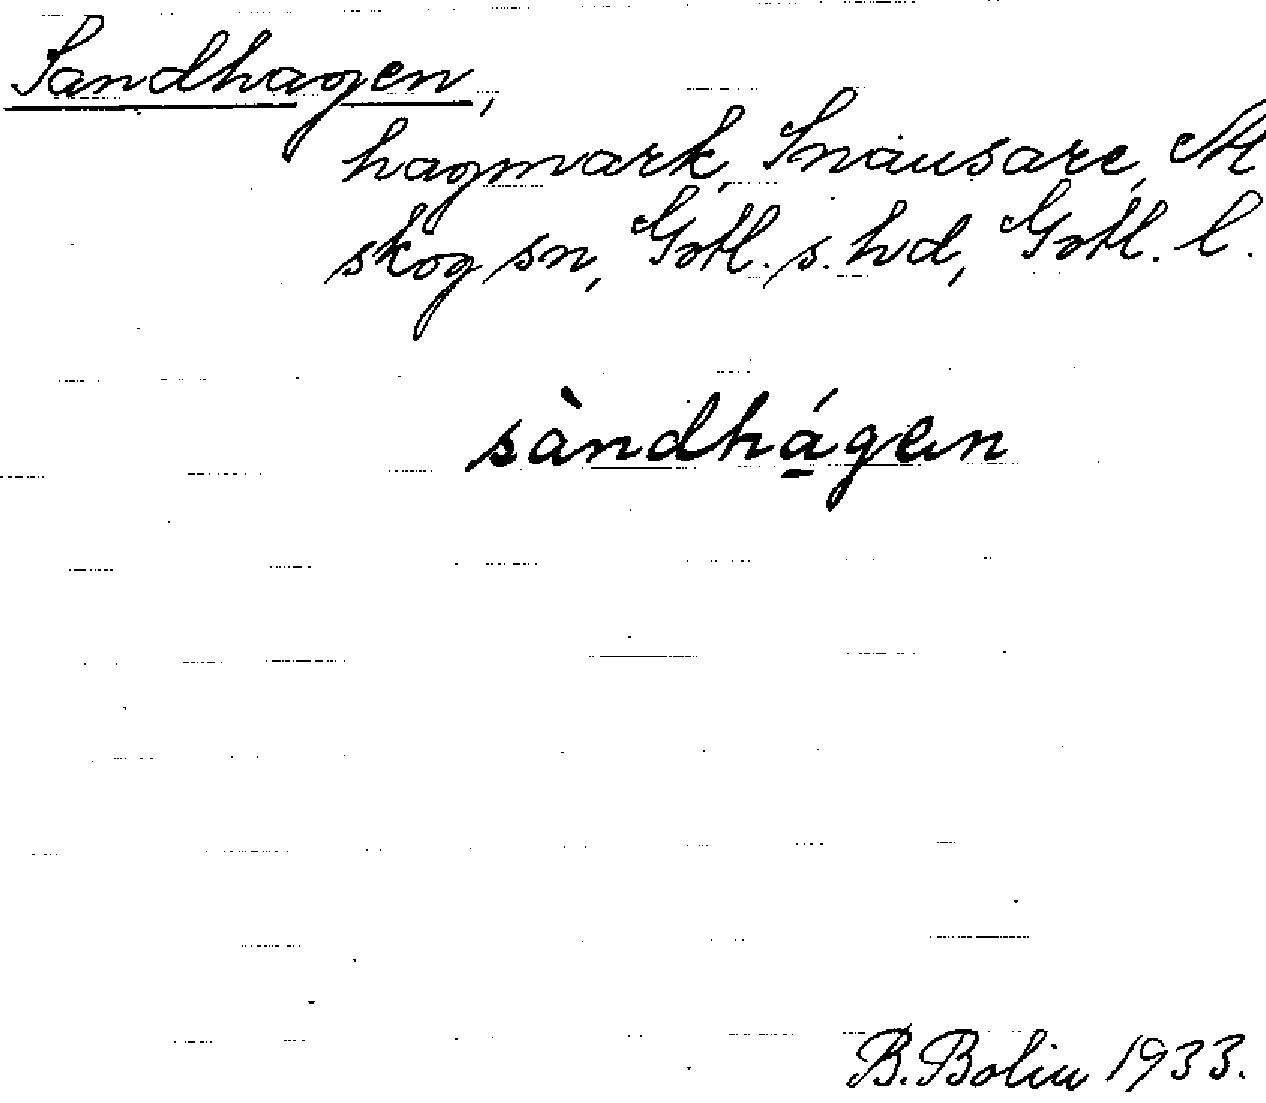 Sandhagen,
hagmark, Snausare, Al
skog sn, Gotl. s. hd, Gotl. l.
sàndhá̱gen
B. Bolin 1933.